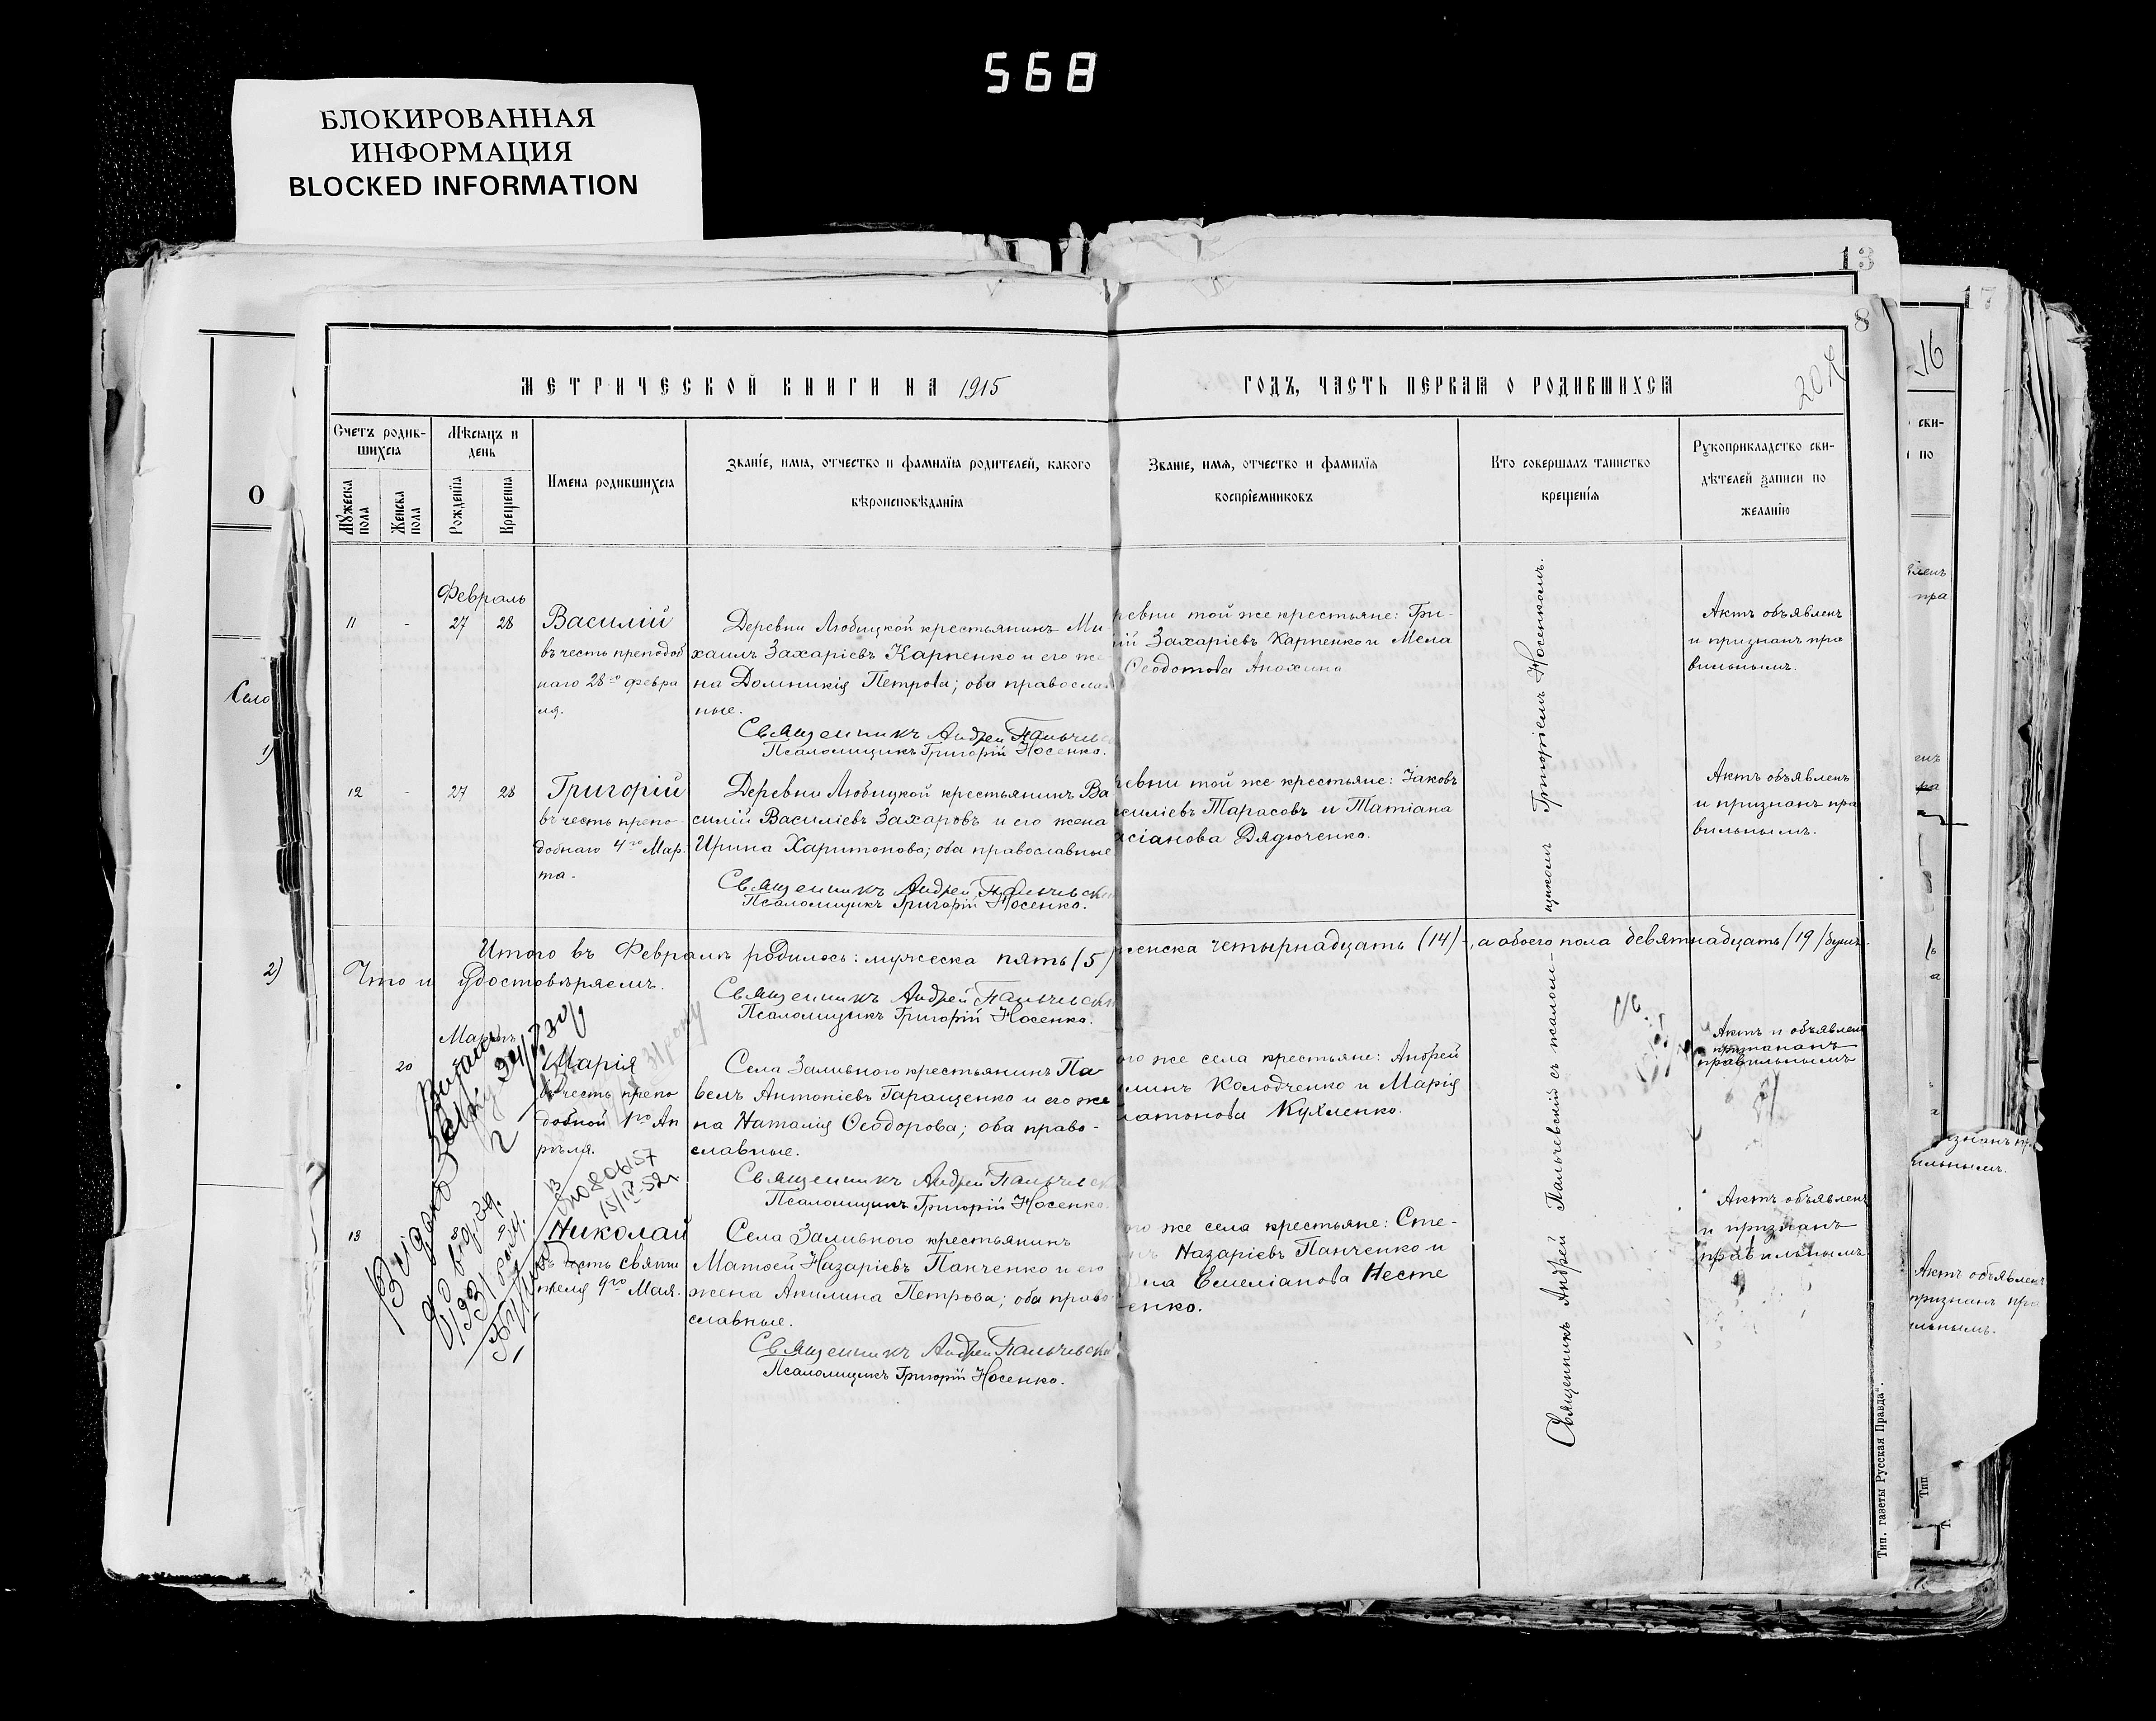 568
БЛОКИРОВАННАЯ
ИНФОРМАЦИЯ
BLOCKED INFORMATION
13
17
8
16
204
МЕТРИЧЕСКОЙ КНИГИ НА 1915
ГОДЪ, ЧАСТЬ ПЕРВАЯ О РОДИВШИХСЯ
Счетъ родив-
шихся
Мужеска
пола
Женска
пола
Мѣсяцъ и
день
Рожденїя
Крещенїя
Имена родившихся
Званїе, имя, отчество и фамилїя родителей, какого
вѣроисповѣданїя
Званїе, имя, отчество и фамилїя
воспрїемниковъ
Кто совершалъ таинство
крещенїя
Рукоприкладство сви-
дѣтелей записи по
желанїю
Февраль
11 - 27 28
Василій
въ честь преподоб
наго 28го февра
ля.
Деревни Любицкой крестьянинъ Ми
хаилъ Захаріевъ Карпенко и его же
на Домникія Петрова; оба православ
ные.
Священникъ Андрей Пальчевск
Псаломщикъ Григорій Носенко.
ревни той же крестьяне: Гри-
ій Захаріевъ Карпенко и Мела
Ѳеодотова Анохина
Актъ объявленъ
и признанъ пра
вильнымъ.
12 - 27 28
Григорій
въ честь препо-
добнаго 4го Мар-
та.
Деревни Любицкой крестьянинъ Ва
силій Василіевъ Захаровъ и его жена
Ирина Харитонова; оба православные
Священникъ Андрей Пальчевск
Псаломщикъ Григорій Носенко.
ревни той же крестьяне: Іаковъ
силіевъ Тарасовъ и Татіана
ксіанова Дядюченко.
Актъ объявленъ
и признанъ пра
вильнымъ.
Итого въ Февралѣ родилось: мужеска пять (5) женска четырнадцать (14), а обоего пола девятнадцать (19) душъ.
Что и удостовѣряемъ.
Священникъ Андрей Пальчевск
Псаломщикъ Григорій Носенко.
Мартъ
20
Марія
въ честь препо
добной 1го Ап
рѣля.
Села Заливного крестьянинъ Па-
велъ Антоніевъ Гаращенко и его же
на Наталія Ѳеодорова; оба право-
славные.
Священникъ Андрей Пальчевск
Псаломщикъ Григорій Носенко.
го же села крестьяне: Андрей
Колодченко и Марія
латонова Кухленко.
Актъ и объявленъ
признанъ
правильнымъ
13
8 9
Николай
въ честь святи
теля 9го Мая.
Села Заливного крестьянинъ
Матѳей Назаріевъ Панченко и его
жена Акилина Петрова; оба право
славные.
Священникъ Андрей Пальчевск
Псаломщикъ Григорій Носенко.
го же села крестьяне: Сте-
Назаріевъ Панченко и
Емеліанова Несте
енко.
Актъ объявленъ
и признанъ
правильнымъ
Священникъ Андрей Пальчевскій съ псалом-
щикомъ Григоріемъ Носенкомъ.
15/IV-52
Тип. газеты Русская Правда".
О
Село
1)
2)
сви-
по
Актъ объявленъ
признанъ пра
ильнымъ.
Тип